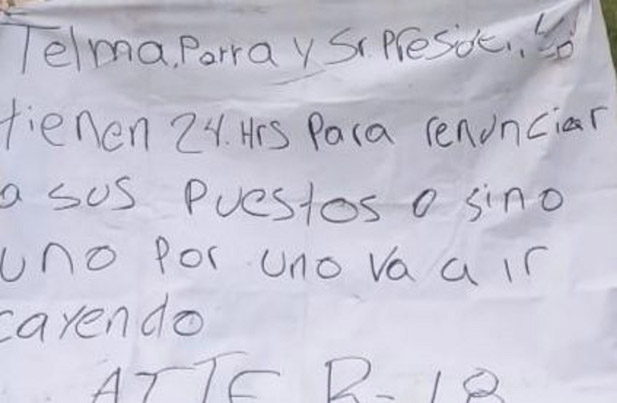 Telma, Parra y Sr. Presiden,
tienen 24.Hrs Para renunciar
a sus Puestos o sino
uno Por uno va a ir
cayendo
ATTE R-18